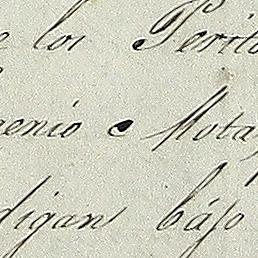 e los Perito
genio e Nota
digan bájo